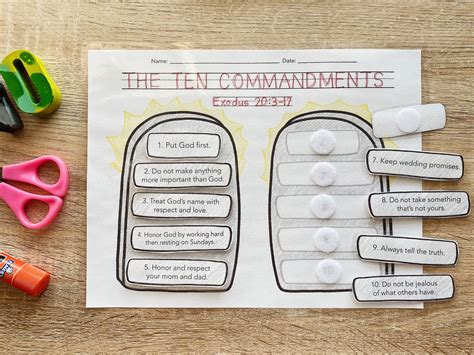 Name: Date:
THE TEN COMMANDMENTS
Exodus 20:3-17
1. Put God first.
2. Do not make anything
more important than God.
3. Treat God's name with
respect and love.
4. Honor God by working hard
then resting on Sundays.
5. Honor and respect
your mom and dad.
10
7. Keep wedding promises.
8. Do not take something
that's not yours.
9. Always tell the truth.
10. Do not be jealous
of what others have.